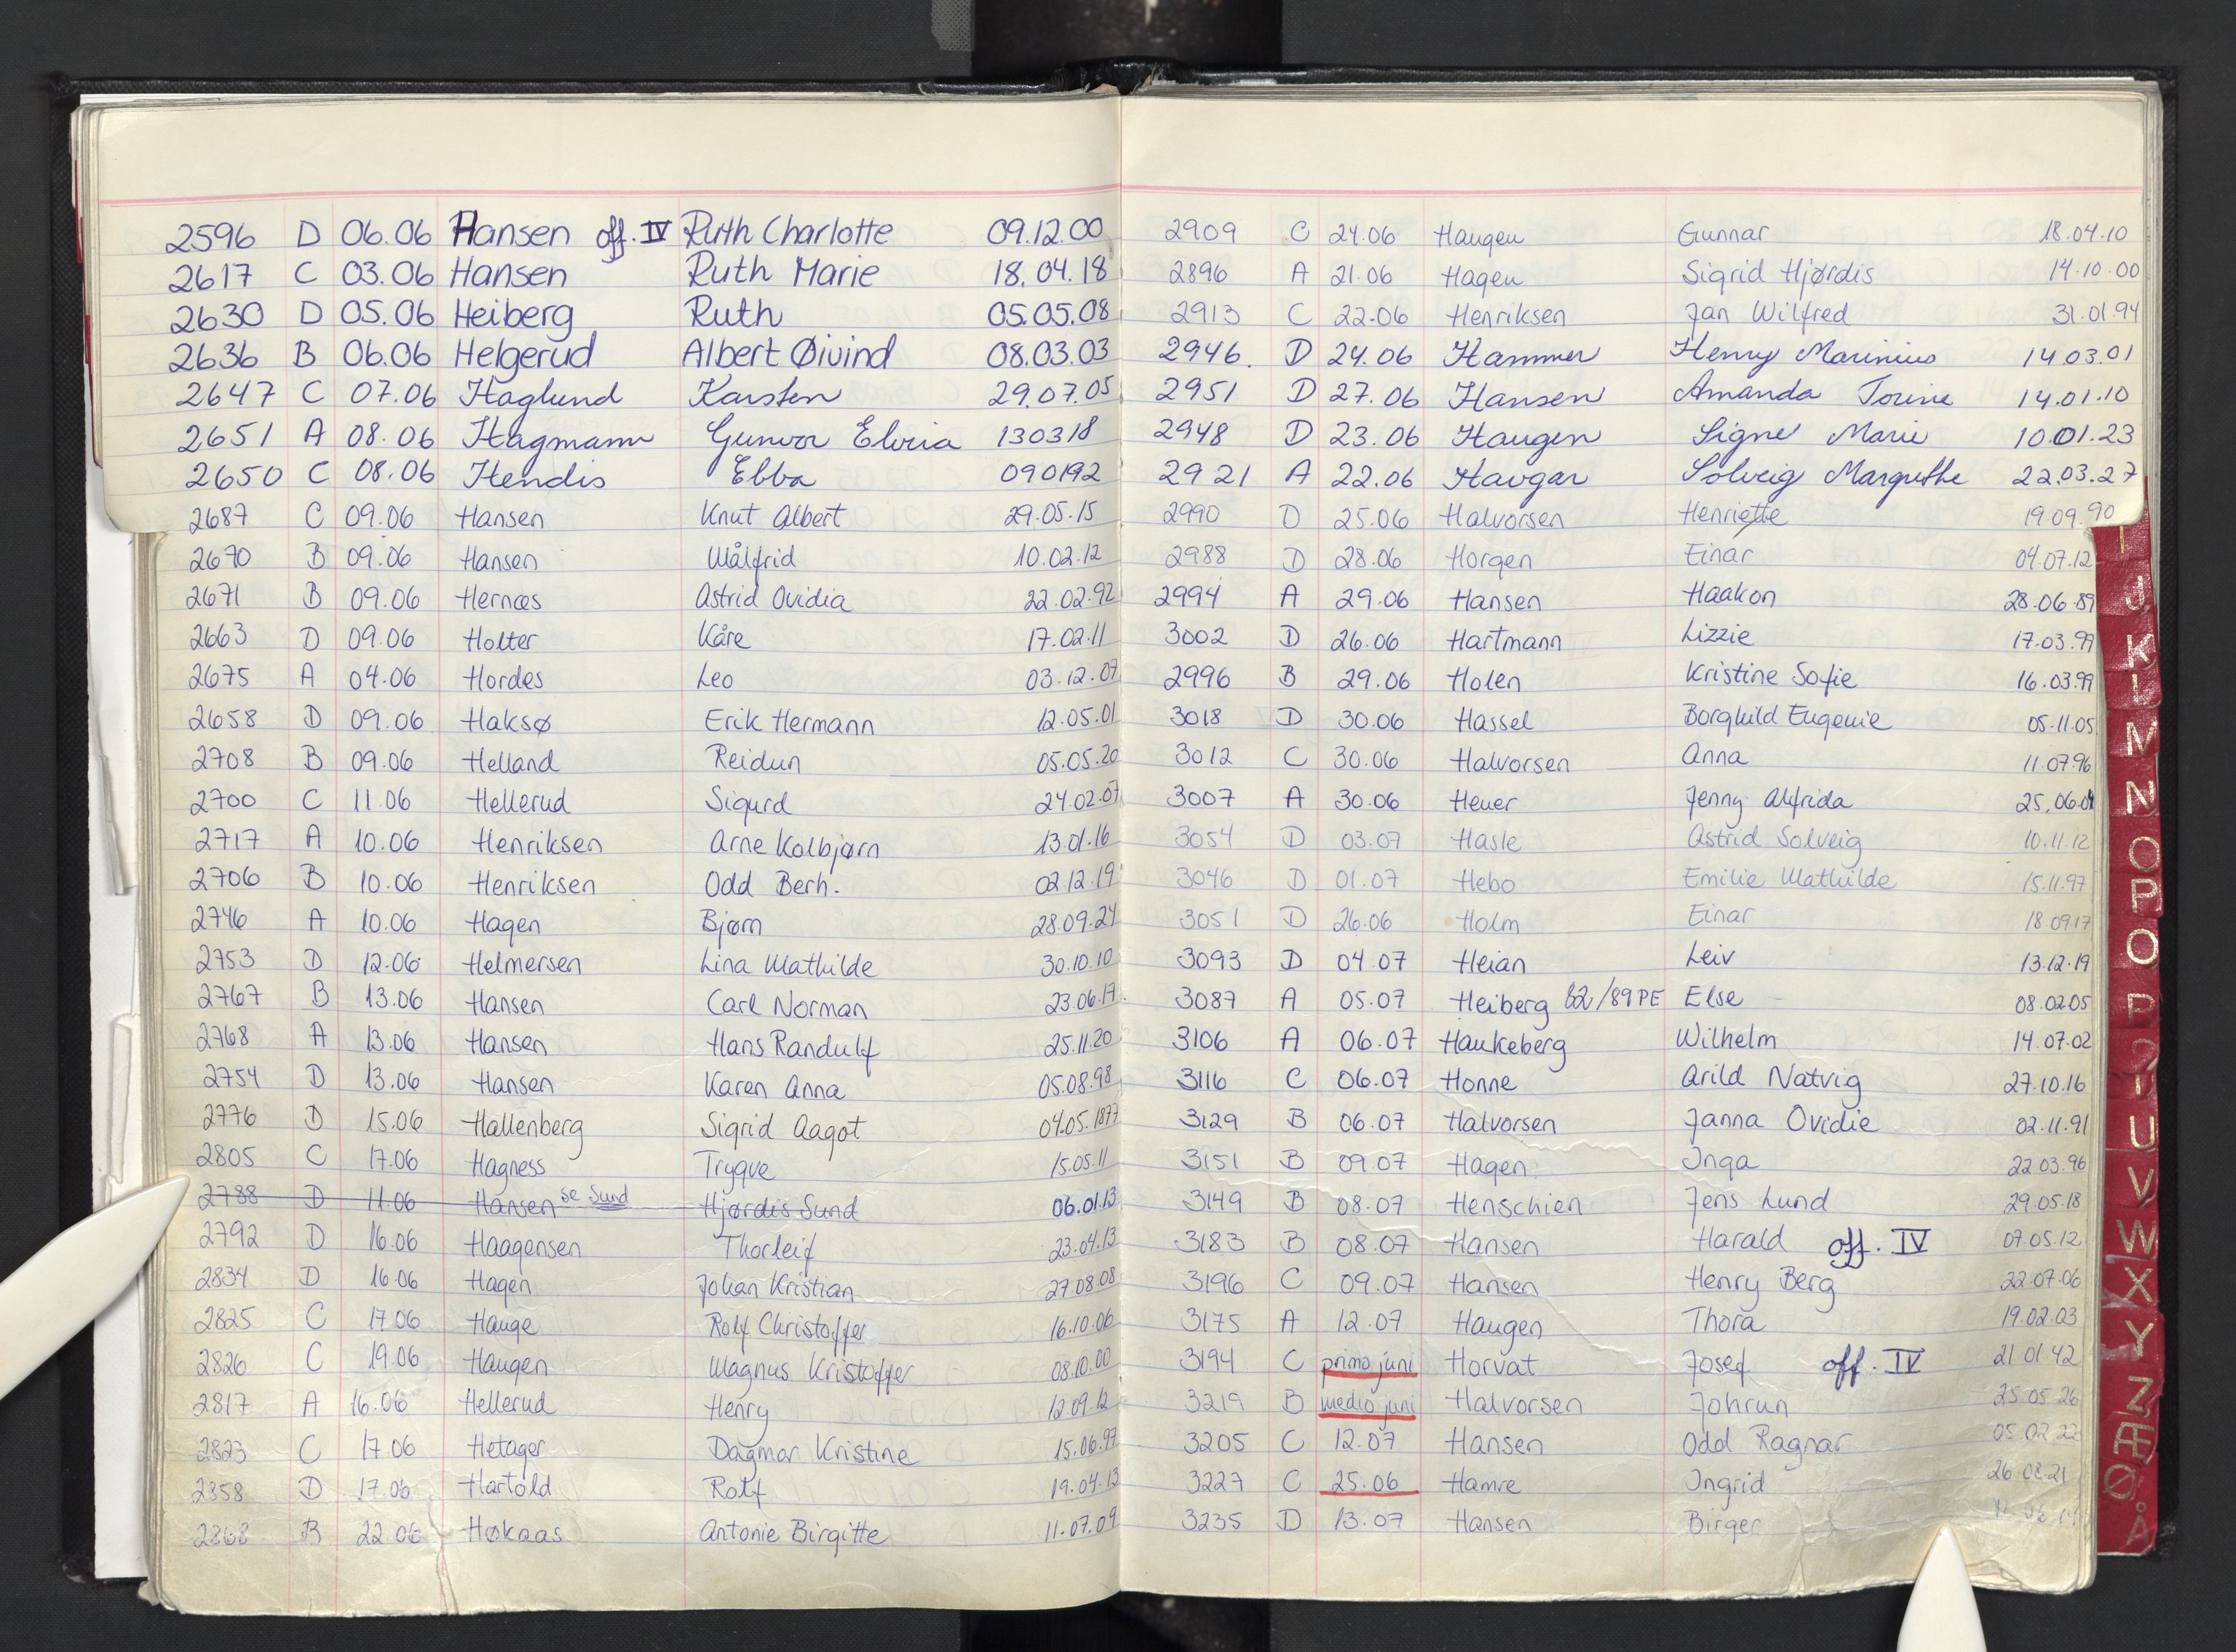 2596 D 06.06 Hansen off. IV Ruth Charlotte 09.12.00
2617 C 03.06 Hansen Ruth Marie 18.04.18
2630 D 05.06 Heiberg Ruth 05.05.08
2636 B 06.06 Helgerud Albert Øivind 08.03.03
2647 C 07.06 Haglund Karsten 29.07.05
2651 A 08.06 Hagmann Gunvor Elvia 130318
2650 C 08.06 Hendis Ebba 090192
2687 C 09.06 Hansen Knut Albert 29.05.15
2670 B 09.06 Hansen Målfrid 10.02.12
2671 B 09.06 Hernæs Astrid Ovidia 22.02.92
2663 D 09.06 Holter Kåre 17.02.11
2675 A 04.06 Hordes Leo 03.12.07
2658 D 09.06 Haksø Erik Hermann 12.05.01
2708 B 09.06 Helland Reidun 05.05.20
2700 C 11.06 Hellerud Sigurd 24.02.07
2717 A 10.06 Henriksen Arne Kolbjørn 13.01.16
2706 B 10.06 Henriksen Odd Berh. 02.12.19
2746 A 10.06 Hagen Bjørn 28.09.24
2753 D 12.06 Helmersen Lina Mathilde 30.10.10
2767 B 13.06 Hansen Carl Norman 23.06.17
2768 A 13.06 Hansen Hans Randulf 25.11.20
2754 D 13.06 Hansen Karen Anna 05.08.98
2776 D 15.06 Hallenberg Sigrid Aagot 04.05.1877
2805 C 17.06 Hagness Trygve 15.05.11
2788 D 11.06 Hansen se Sund Hjørdis Sund 06.01.13
2792 D 16.06 Haagensen Thorleif 23.04.13
2834 D 16.06 Hagen Johan Kristian 27.08.08
2825 C 17.06 Hauge Rolf Christoffer 16.10.06
2826 C 19.06 Haugen Magnus Kristoffer 08.10.00
2817 A 16.06 Hellerud Henry 12.09.12
2823 C 17.06 Hetager Dagmar Kristine 15.06.97
2858 D 17.06 Hartold Rolf 19.04.13
2868 B 22.06 Høkaas Antonie Birgitte 11.07.09
2909 C 24.06 Haugen Gunnar 18.04.10
2896 A 21.06 Hagen Sigrid Hjørdis 14.10.00
2913 C 22.06 Henriksen Jan Wilfred 31.01.94
2946. D 24.06 Hammer Henry Marinius 14.03.01
2951 D 27.06 Hansen Amanda Tourine 14.01.10
2948 D 23.06 Haugen Signe Marie 10.01.23
2921 A 22.06 Haugar Solveig Margrethe 22.03.27
2990 D 25.06 Halvorsen Henriette 19.09.90
2988 D 28.06 Horgen Einar 04.07.12
2994 A 29.06 Hansen Haakon 28.06.89
3002 D 26.06 Hartmann Lizzie 17.03.99
2996 B 29.06 Holen Kristine Sofie 16.03.99
3018 D 30.06 Hassel Borghild Eugenie 05.11.05
3012 C 30.06 Halvorsen Anna 11.07.96
3007 A 30.06 Heuer Jenny Alfrida 25.06.04
3054 D 03.07 Hasle Astrid Solveig 10.11.12
3046 D 01.07 Hebo Emilie Mathilde 15.11.97
3051 D 26.06 Holm Einar 18.0917
3093 D 04.07 Heian Leiv 13.12.19
3087 A 05.07 Heiberg 62/89 PE Else 08.0205
3106 A 06.07 Haukeberg Wilhelm 14.07.02
3116 C 06.07 Honne Arild Natvig 27.10.16
3129 B 06.07 Halvorsen Janna Ovidie 02.11.91
3151 B 09.07 Hagen Inga 22.03.96
3149 B 08.07 Henschien Jens Lund 29.05.18
3183 B 08.07 Hansen Harald off. IV 07.05.12
3196 C 09.07 Hansen Henry Berg 22.07.06
3175 A 12.07 Haugen Thora 19.02.03
3194 C primo juni Horvat Josef off. IV 21 01 42
3219 B medio juni Halvorsen Johrun 25.05.26
3205 C 12.07 Hansen Odd Ragnar 05.02.22
3227 C 25.06 Hamre Ingrid 26.08.21
3235 D 13.07 Hansen Birger
I
J
K
L
M
N
O
P
Q
P
U
V
W
X
Y
Z
Æ
Ø
Å